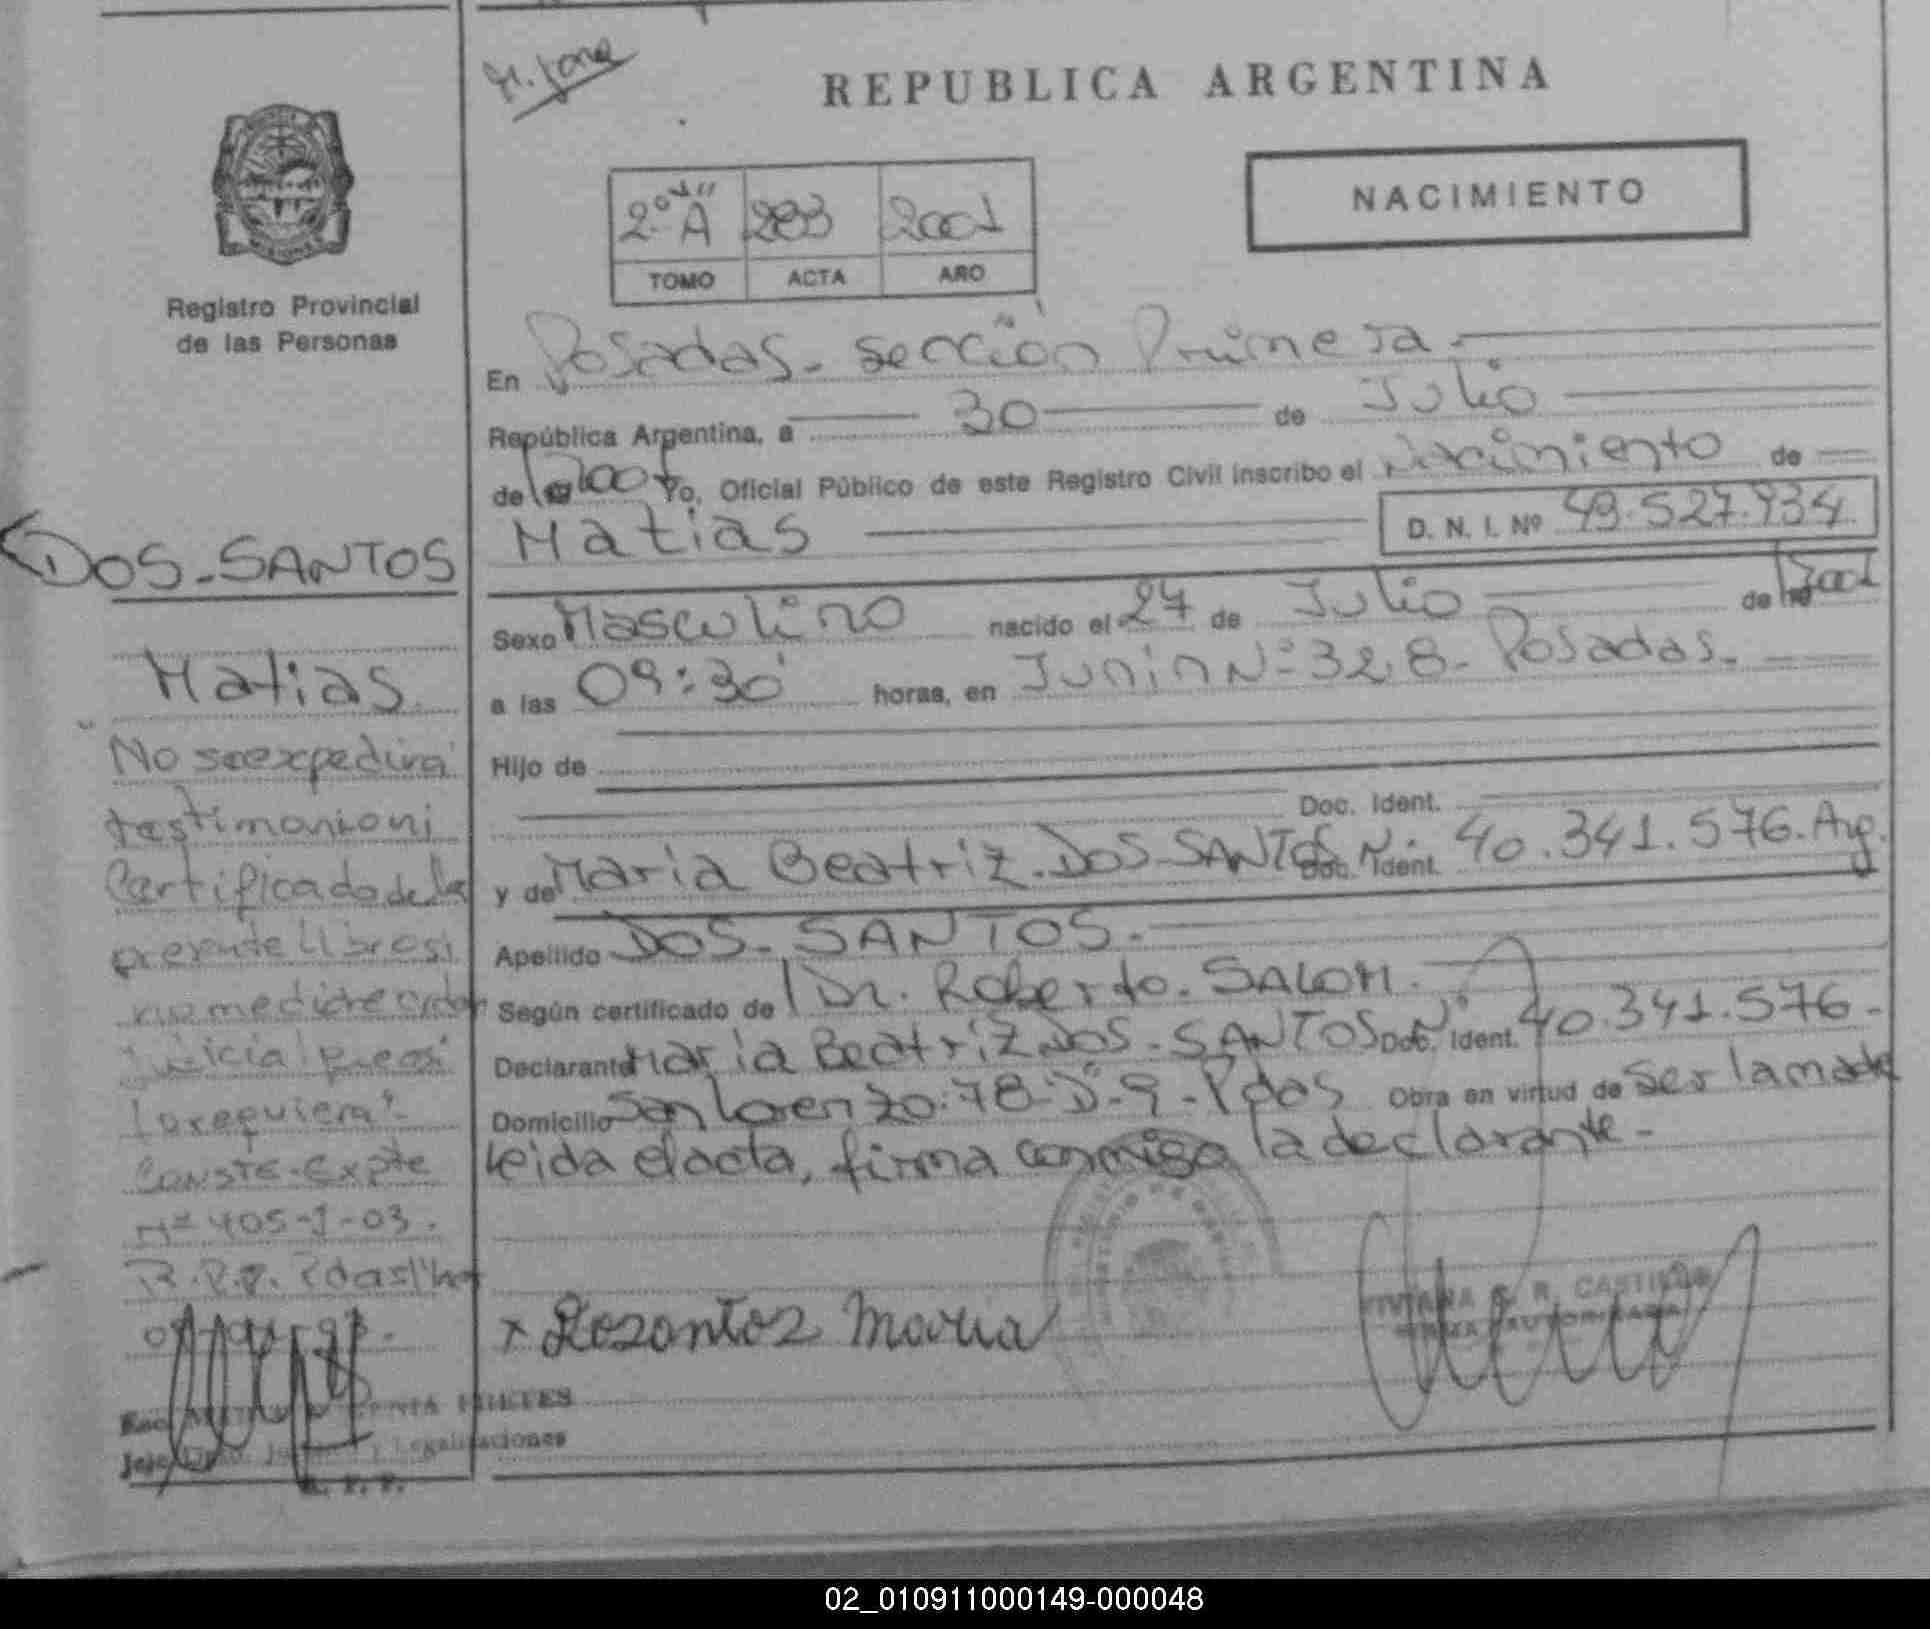 REPUBLICA ARGENTINA
NACIMIENTO
2º "A" 283 2001
TOMO ACTA AÑO
Registro Provincial
de las Personas
En Posadas - sección Primera.
República Argentina, a 30 de Julio
de 2001 Yo, Oficial Público de este Registro Civil inscribo el Nacimiento de
Matias
D. N. I. Nº 43.527.934
DOS-SANTOS
Matias
Sexo Masculino nacido el 27 de Julio de 2001
a las 09:30 horas, en Junin Nº 328 - Posadas.
Hijo de
Doc. Ident.
y de Maria Beatriz DOS-SANTOS Doc. Ident. 40.341.576. Arg.
Apellido DOS-SANTOS.
Según certificado de Dr. Roberto. SALOM.
Declarante Maria Beatriz DOS-SANTOS Doc. Ident. Nº 40.341.576.-
Domicilio San Lorenzo. 78 - D-9 - Pdas Obra en virtud de ser la madre
Leida el acta, firma conmigo la declarante.-
"No se expedirá
testimonio ni
Certificado de la
presente libro si
no medie orden
Judicial que así
lo requiera"
CONSTE-Expte
Nº 405-J-03.
R.P.P. Pdas
x Dosantos Maria
VIVIANA R. CASTILLO
FIRMA AUTORIZADA
Legalizaciones
R. P. P.
02_010911000149-000048